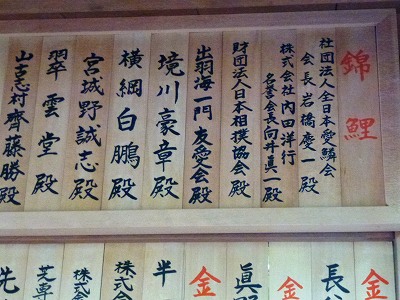 錦鯉
社団法人全日本愛鱗会
会長岩橋慶一殿
株式会社内田洋行
名誉会長向井眞一殿
財団法人日本相撲協会殿
出羽海一門友愛会殿
境川豪章殿
横綱白鵬殿
宮城野誠志殿
翠雲堂殿
山古志村齊藤勝殿
長
金
眞
金
半
株式会
株式
芝専
先